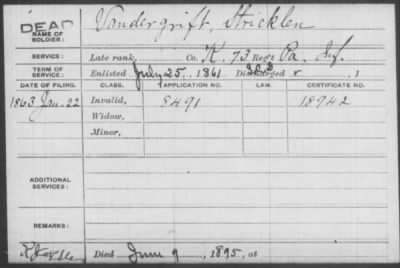 DEAD Vandergrift, Stricklen
NAME OF
SOLDIER:
SERVICE: Late rank, Co. K. 73 Reg't Pa. Inf.
TERM OF
SERVICE: Enlisted July 25, 1861 Discharged , 1
DATE OF FILING. CLASS. APPLICATION NO. LAW. CERTIFICATE NO.
1863 Jan. 22 Invalid, 8491 18942
Widow,
Minor,
ADDITIONAL
SERVICES:
REMARKS:
Died June 9, 1895, at